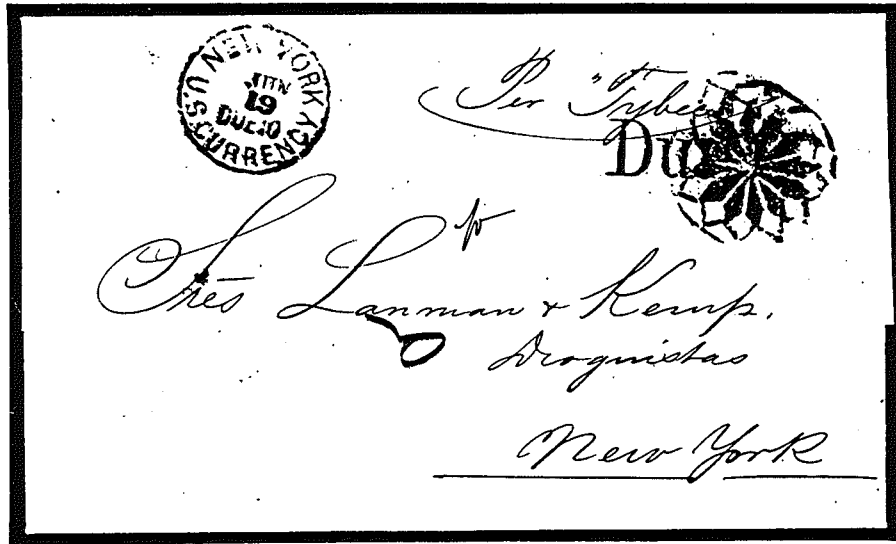 NEW YORK
JUN
19
DUE 10
U.S. CURRENCY
Per "Tybee
Du
Sres Lanman & Kemp.
Droguistas
New York